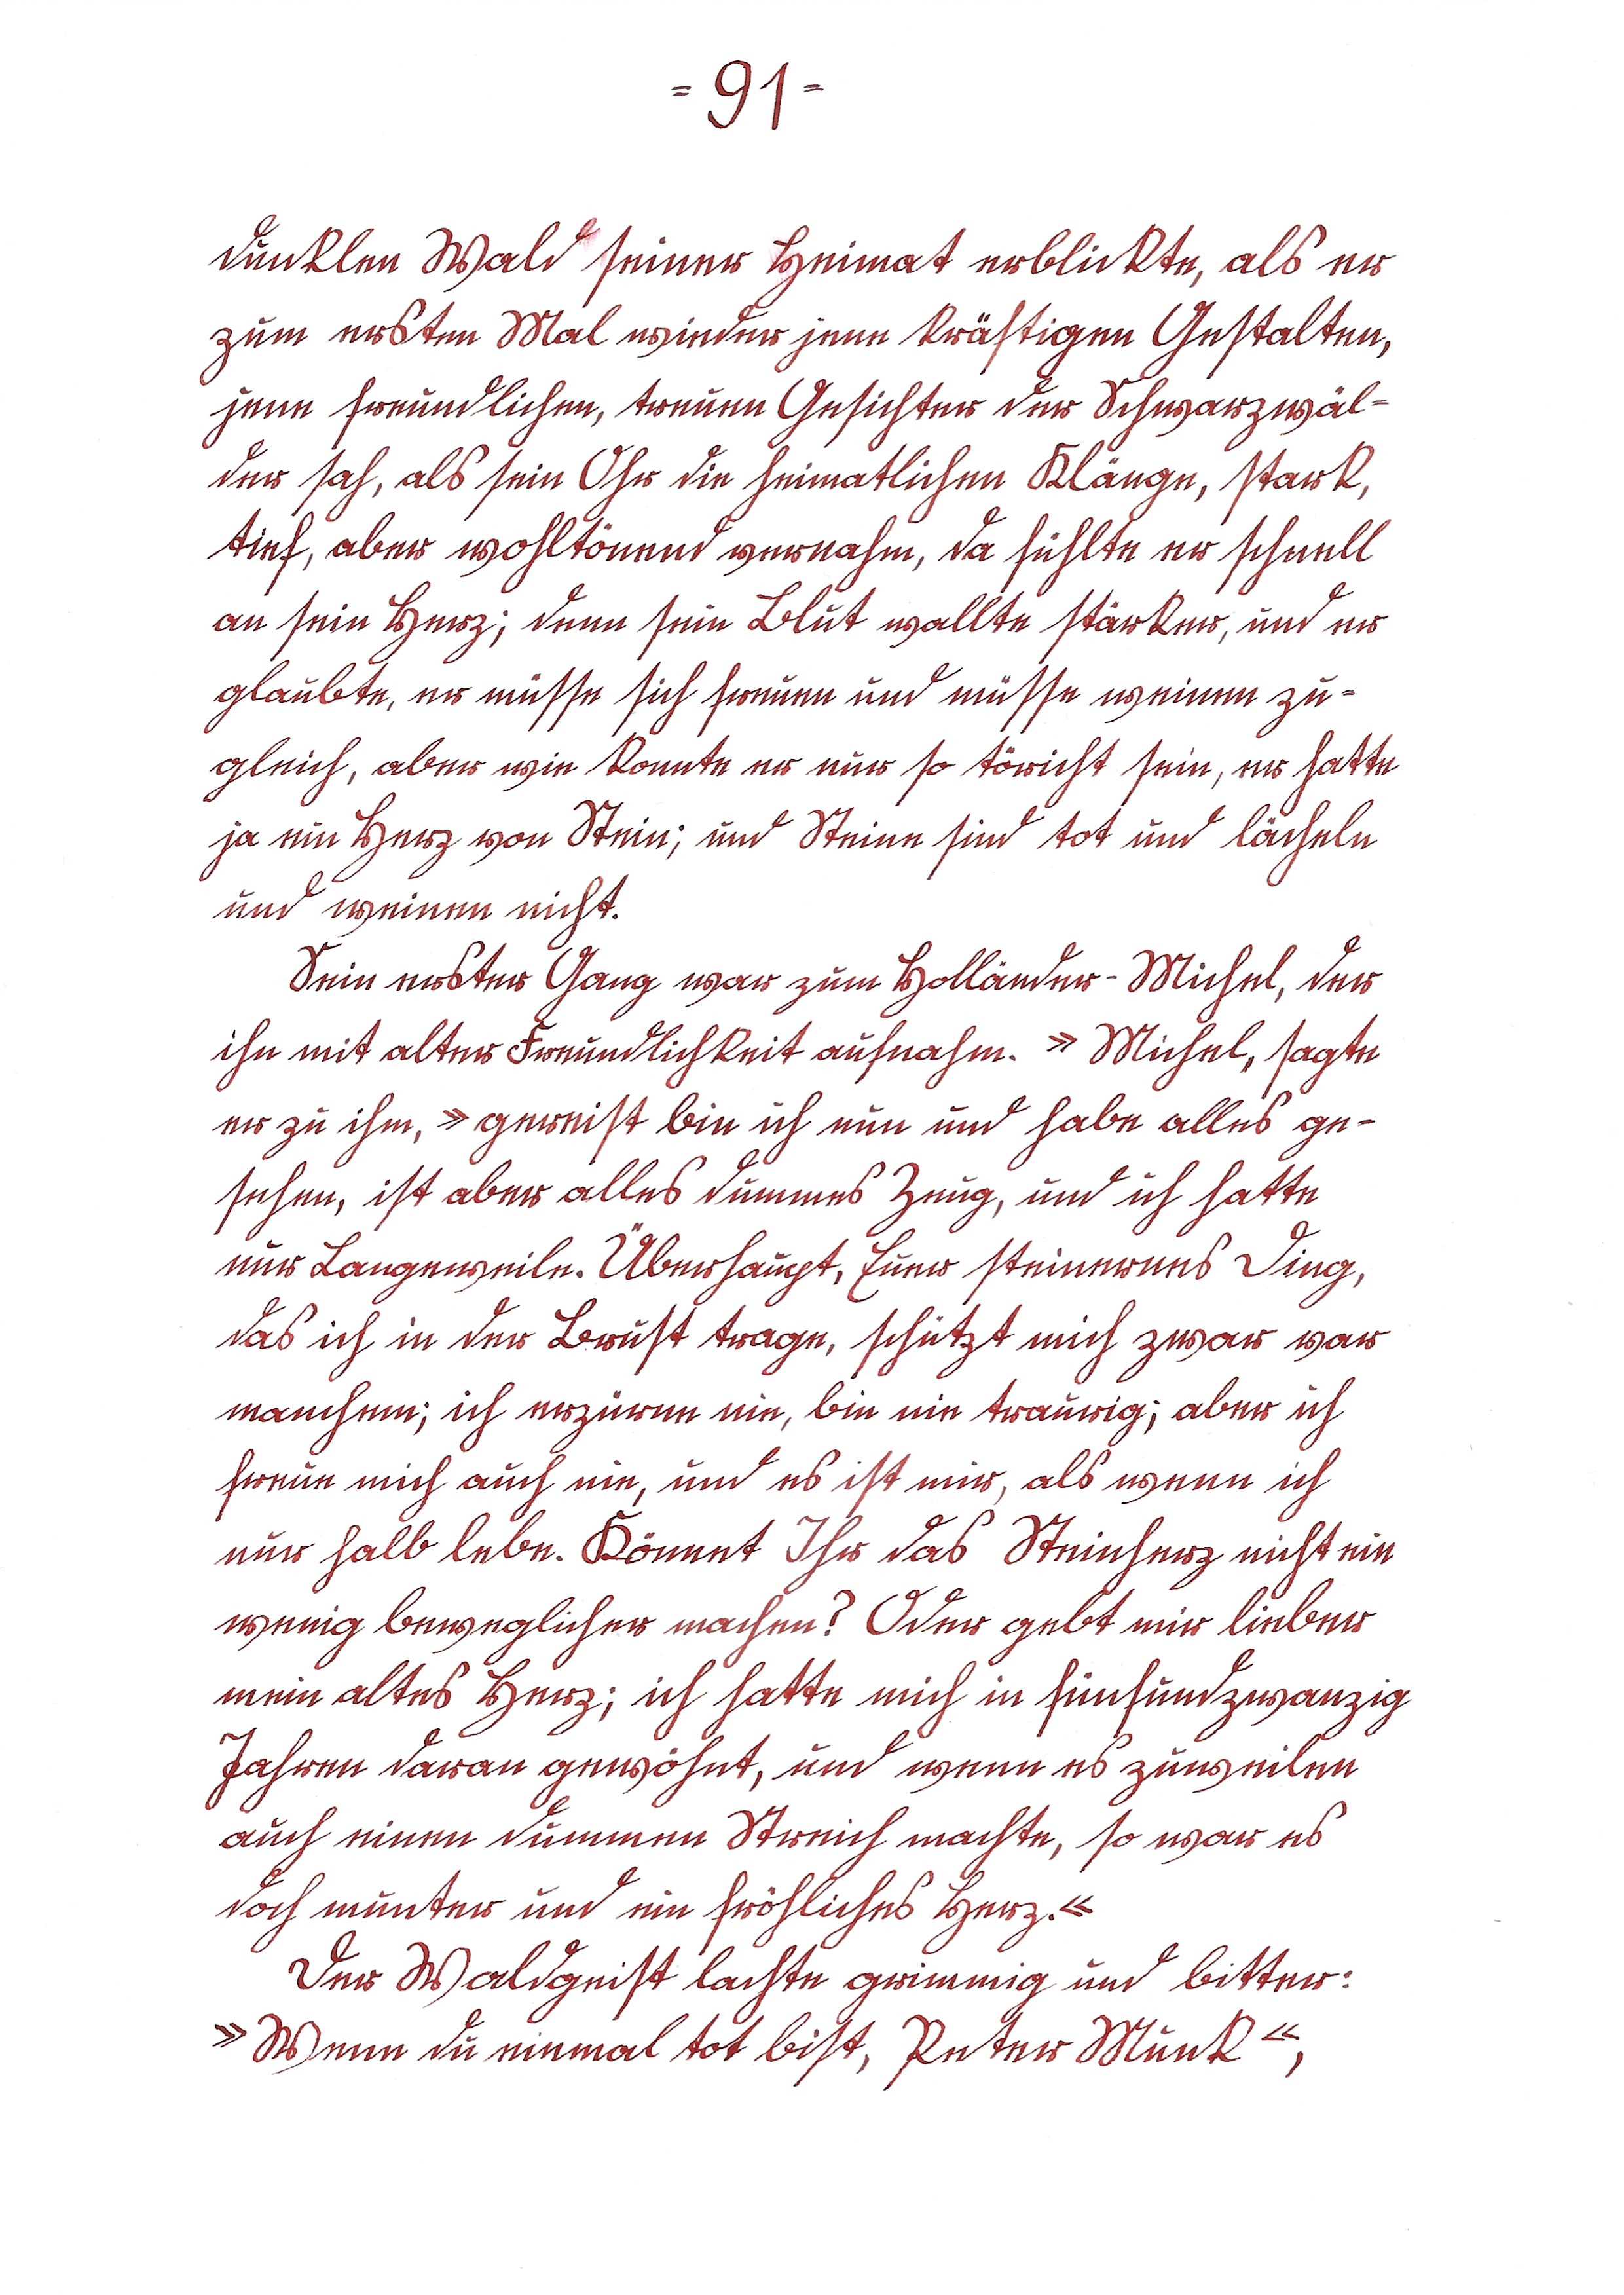 = 91 =
dunklen Wald seiner Heimat erblickte, als er
zum ersten Mal wieder jene kräftigen Gestalten,
jene freundlichen, treuen Gesichter der Schwarzwäl=
der sah, als sein Ohr die heimatlichen Klänge, stark,
tief, aber wohltönend vernahm, da fühlte er schnell
an sein Herz; denn sein Blut wallte stärker, und er
glaubte, er müsse sich freuen und müsse weinen zu=
gleich, aber wie konnte er nur so töricht sein, er hatte
ja ein Herz von Stein; und Steine sind tot und lächeln
und weinen nicht.
Sein erster Gang war zum Holländer-Michel, der
ihn mit alter Freundlichkeit aufnahm. »Michel, sagte
er zu ihm, »gereist bin ich nun und habe alles ge-
sehen, ist aber alles dummes Zeug, und ich hatte
nur Langeweile. Überhaupt, Euer steinernes Ding,
das ich in der Brust trage, schützt mich zwar var
manchem; ich erzürne nie, bin nie traurig; aber ich
freue mich auch nie, und es ist mir, als wenn ich
nur halb lebe. Könnet Ihr das Steinherz nicht ein
wenig beweglicher machen? Oder gebt mir lieber
mein altes Herz; ich hatte mich in fünfundzwanzig
Jahren daran gewöhnt, und wenn es zuweilen
auch einen dummen Streich machte, so war es
doch munter und ein fröhliches Herz.«
Der Waldgeist lachte grimmig und bitter:
»Wenn du einmal tot bist, Peter Munk«,